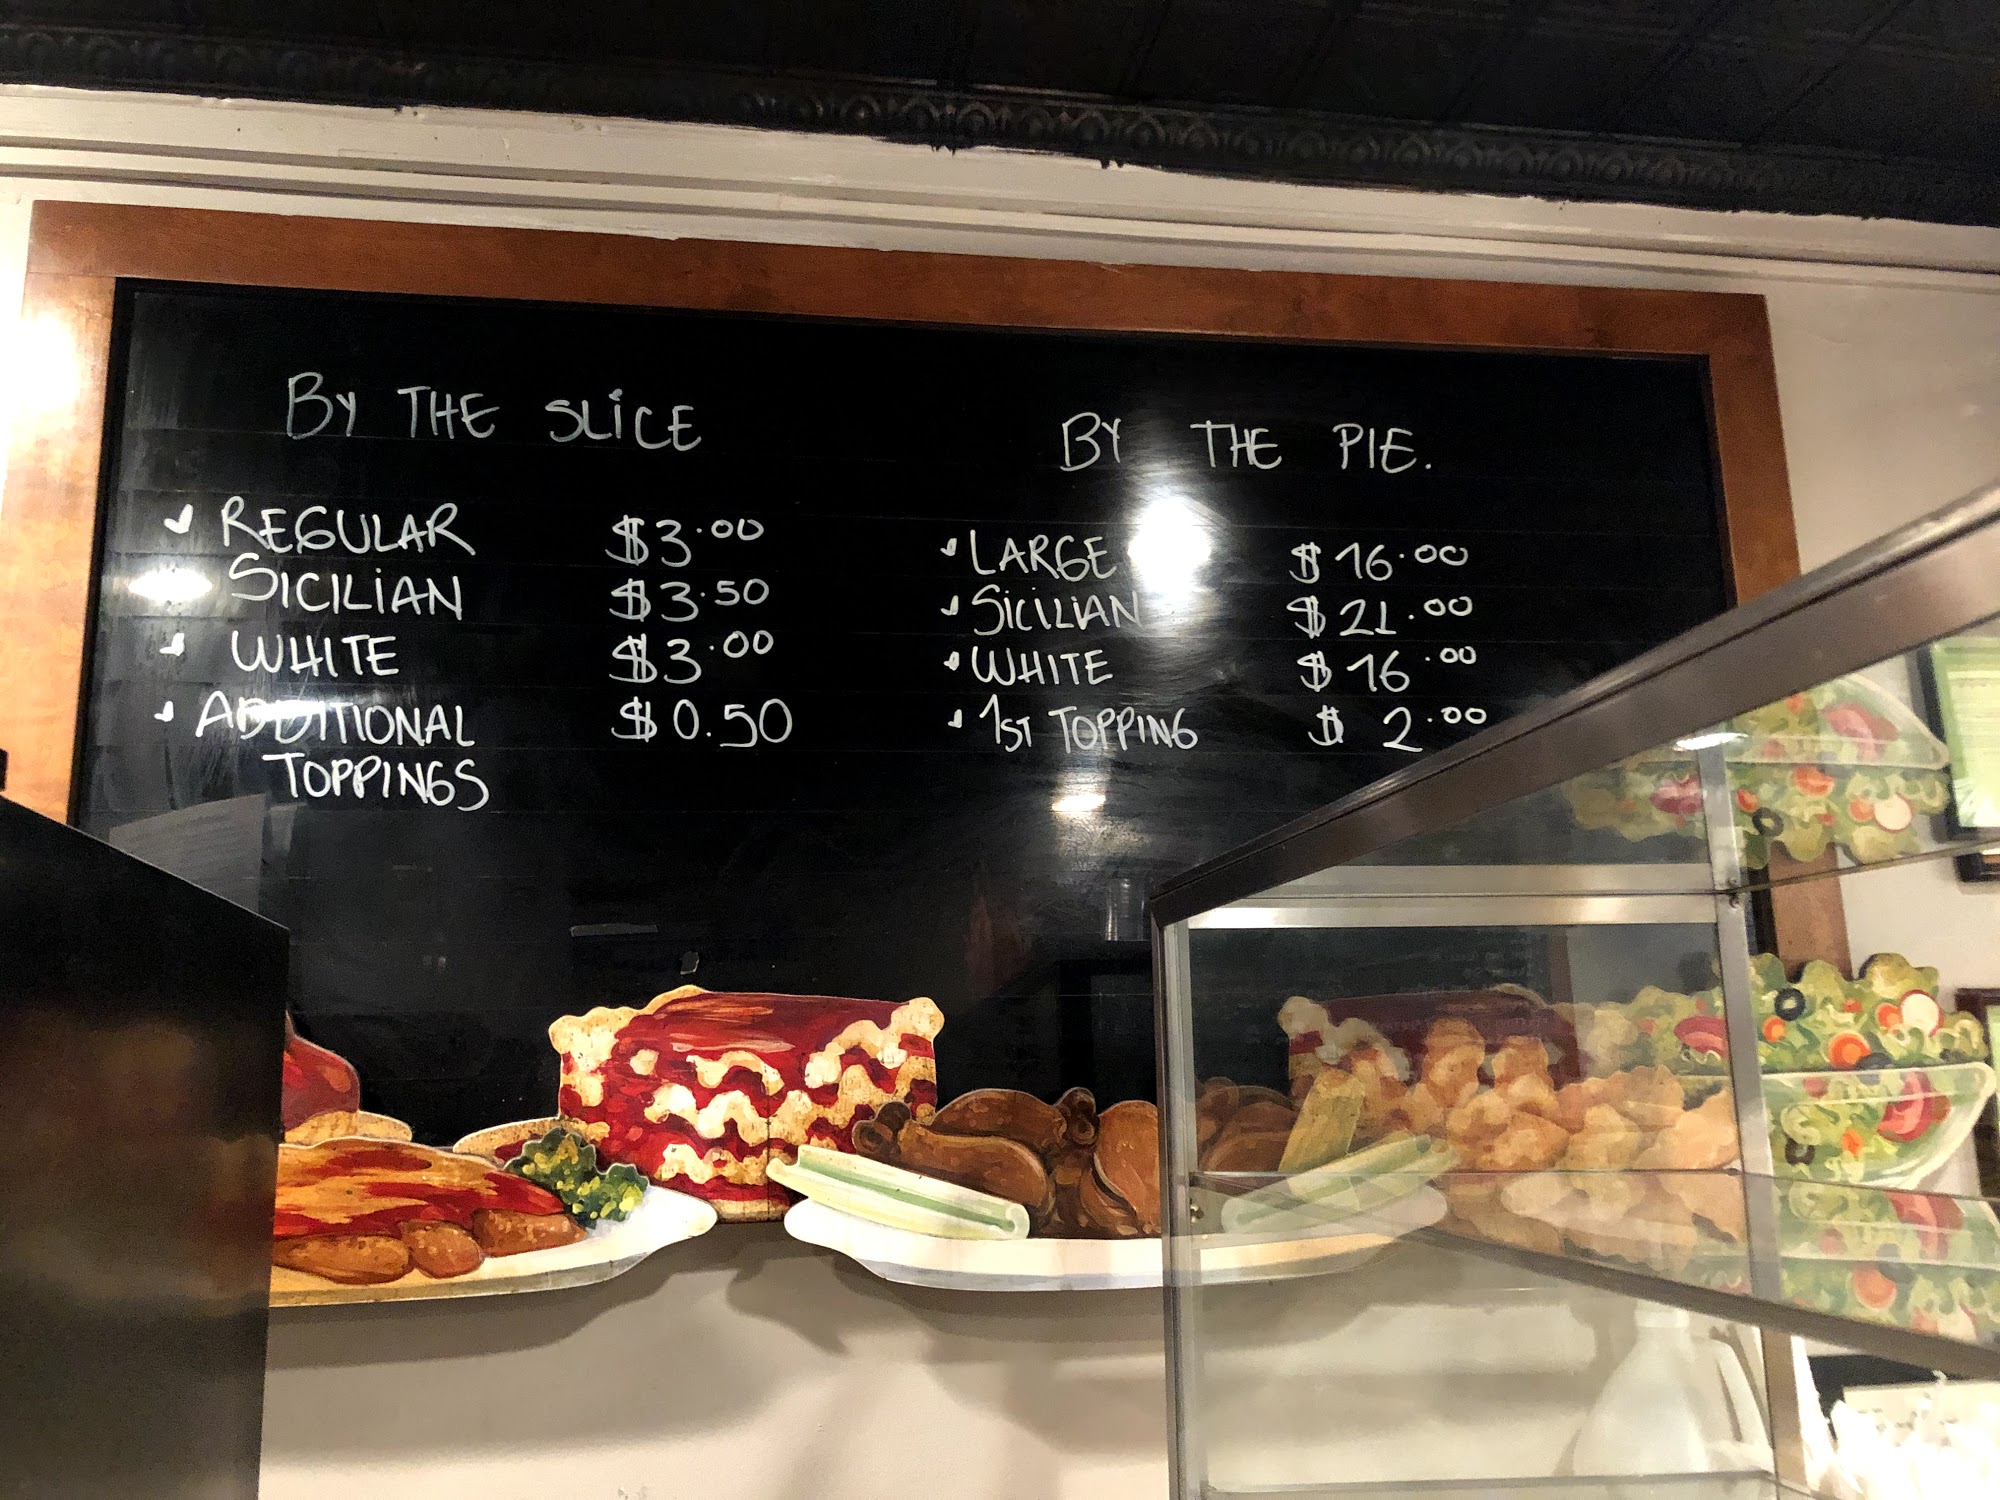 By THE SLiCE
REGULAR $3.00
SICILiAN $3.50
WHITE $3.00
ADDITIONAL $0.50
TOPPINGS
BY THE PIE.
LARGE $16.00
SiCILiAN $21.00
WHITE $16.00
1ST TOPPING $2.00